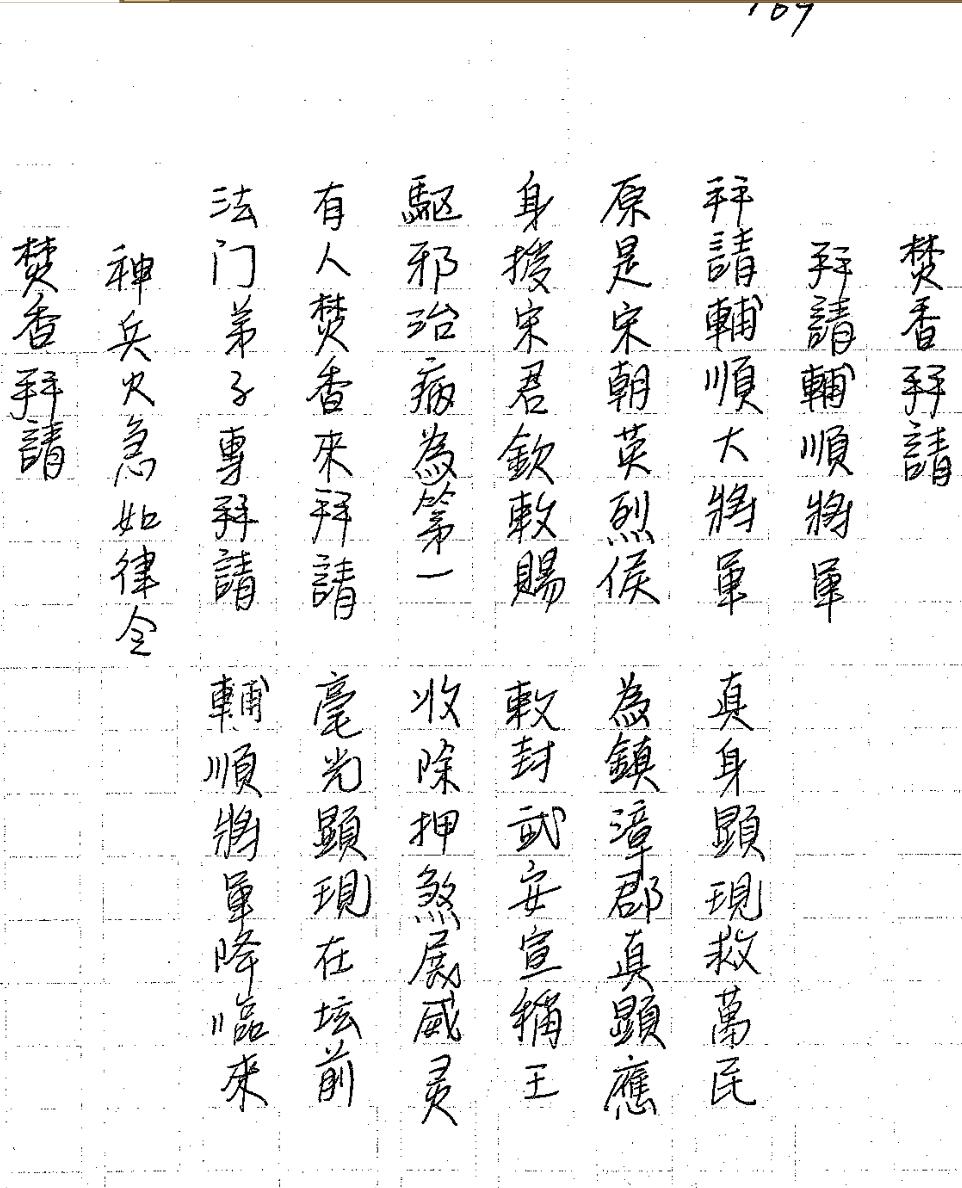 焚香拜請
拜請輔順將軍
拜請輔順大將軍 真身顯現救萬民
原是宋朝英烈侯 為鎮漳郡真顯應
身授宋君欽敕賜 敕封武安宣稱王
駆邪治病為第一 收除押煞展威灵
有人焚香來拜請 毫光顯現在坛前
法门弟子專拜請 輔順將軍降臨來
神兵火急如律令
焚香拜請